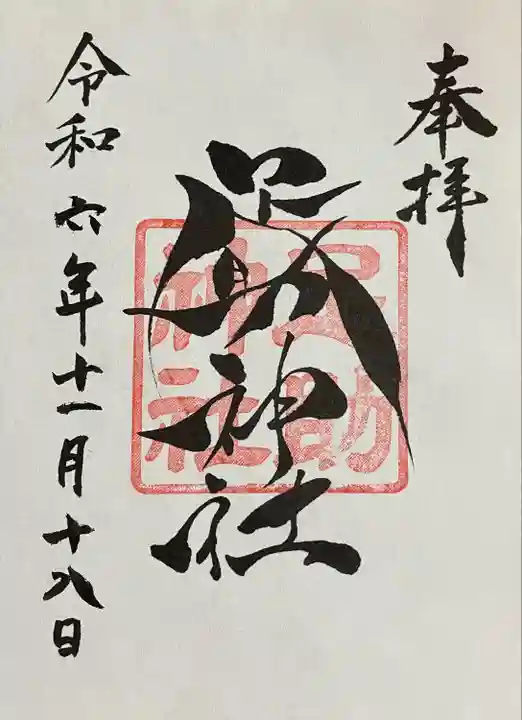 奉拝
足助神社
足助
神社
令和六年十一月十八日